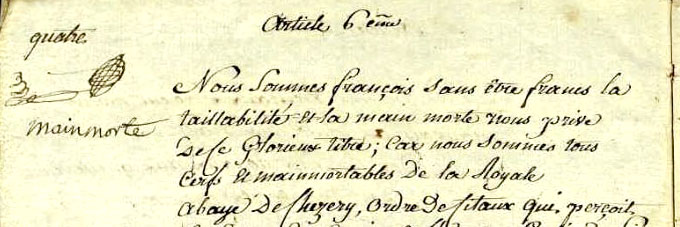 Article 6 eme
quatre
mainmorte
Nous sommes françois sans être francs la
taillabilité et la main morte nous prive
de ce glorieux titre; car nous sommes tous
cerfs et mainmortables de la Royale
abaye De Chezery, ordre De Citaux qui perçoit